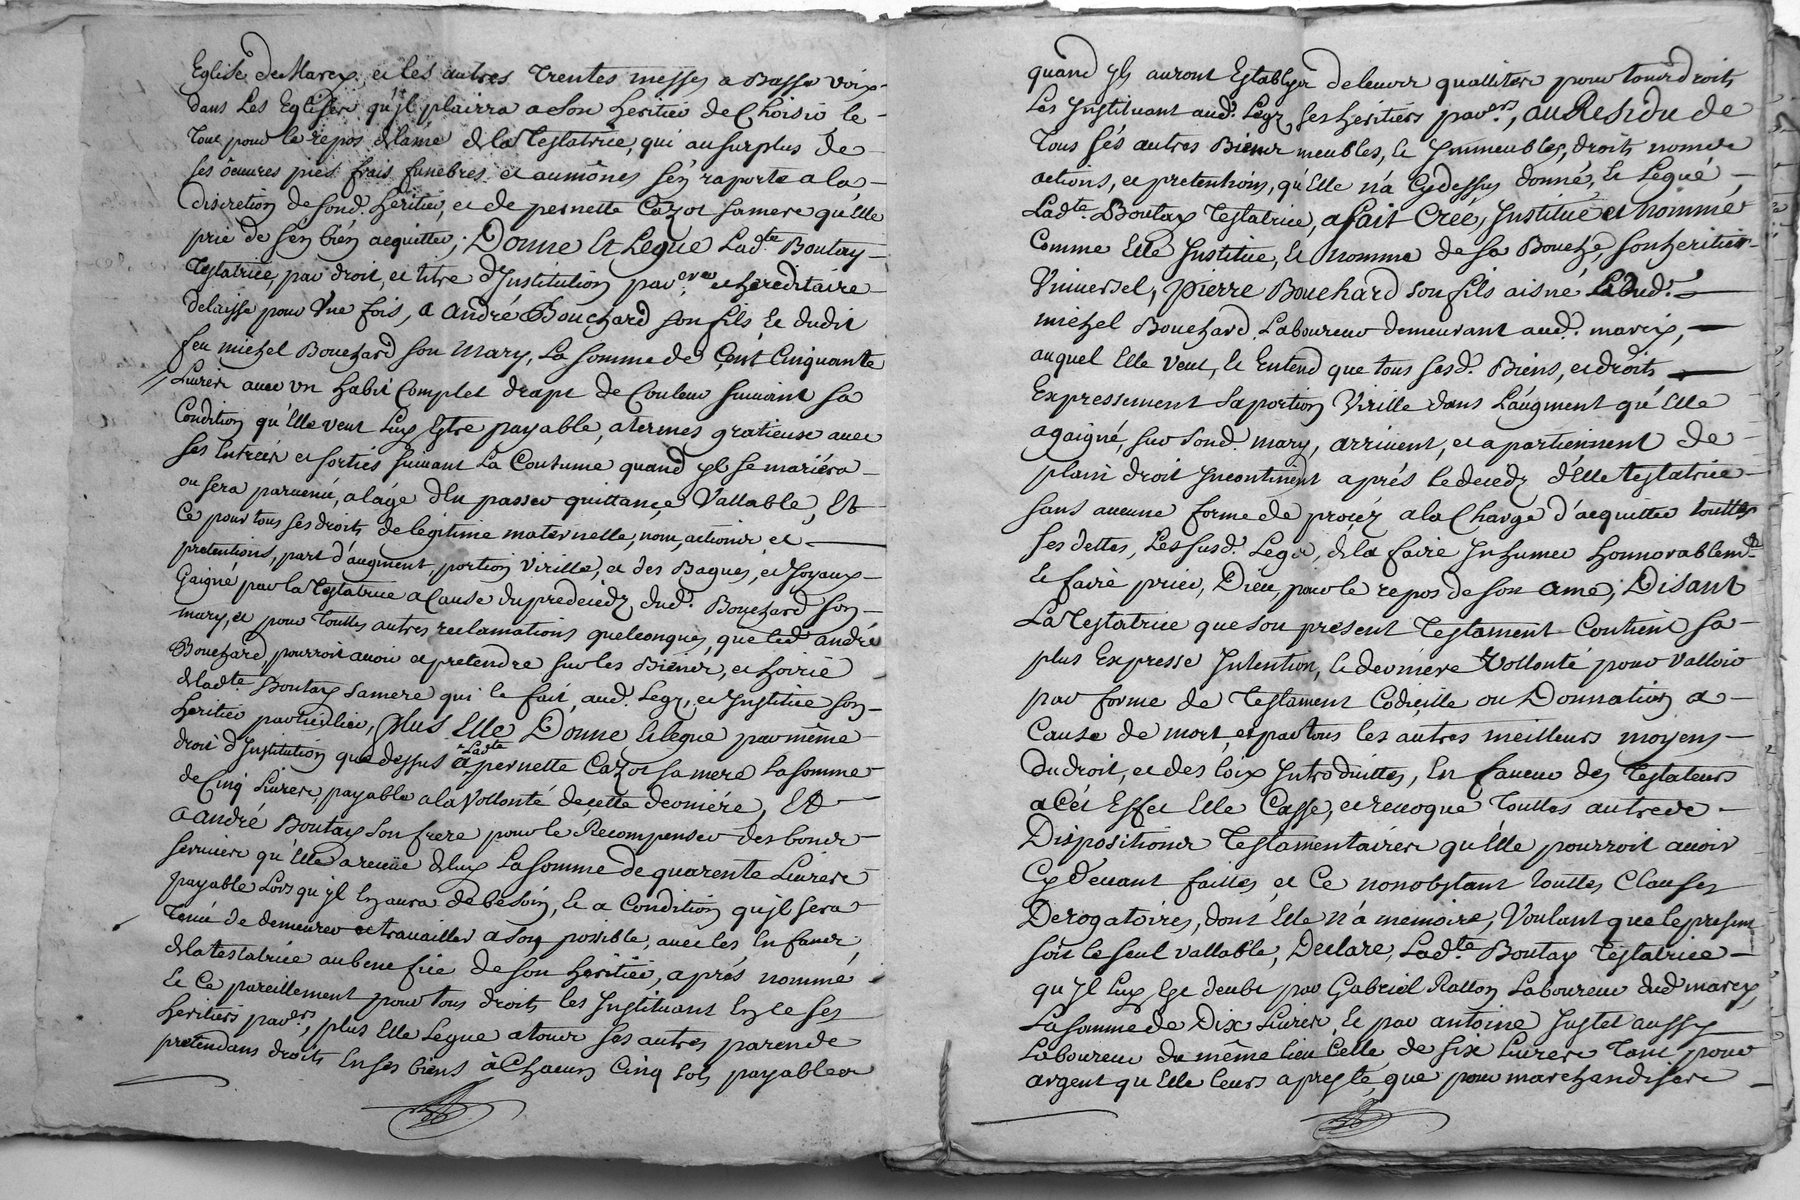 Eglise de Marcy. et les autres Trentes messes a Basse voix
dans Les Eglises qu'jl plairra a son Heritier de Choisir le
Tout pour le repos de lame de la Testatrice, qui au surplus de
ses ôeuures pies frais funebres et aumônes s'en raporte a la
discretion de sond. Heritier, et de pernette Cazot samere qu'elle
prie de s'en bien acquitter, Donne Et Legue Lad.te Boutay
Testatrice, par droit, et titre d'Institution par.ere et hereditaire
delaissé pour Vne fois, a andré Bouchard son fils Et dudit
feu michel Bouchard son Mary, La somme de Cent Cinquante
Liures auec vn habit Complet drapt de Couleur suiuant sa
Condition qu'Elle veut Luy Estre payable, a termes gratieuse auec
ses Entrées et sorties suiuant La Coutume quand jl se mariéra
ou sera paruenu, a lâge d'En passer quittançe Vallable, Et
Ce pour tous ses droits de legitime maternelle, nom, actions et
pretentions, part d'augment, portion Virille, et des Bagues, et Joyaux
Gaigné par la Testatrice a Cause du predeciedz dud. Bouchard son
mary, et pour Touttes autres reclamations quelconques, que led. andré
Bouchard, pourroit auoir et pretendre sur les Biens, et hoirie
de lad.te Boutay samere qui le fait, aud. Legz, et Jnstitue son
Heritier particulier, plus Elle Donne Et legue par même
droit d'Jnstitution que dessus a Lad.te pernette Cazot sa mere La somme
de Cinq Liures, payable a la Vollonté de cette derniére, Et
a andré Boutay son frere pour le Recompenser des bons
seruices qu'Elle a receüe de luy La somme de quarente Liures
payable Lors qu'jl En aura de besoin, Et a Condition qu'jl sera
Tenu de demeurer et trauailler a son possible, auec les Enfans,
de la testatrice au benefice de son Heritier, aprés nommé
Et Ce pareillement pour tous droits les Jnstituant En ce ses
Heritiers par.ers, plus Elle Legue a tous ses autres parens
pretendans droits En ses biens à Chacun Cinq sols payables
quand jls auront Establyr de leurs quallités pour tous droits
Les Jnstituant aud. Legz ses heritiers par.ers, au Residu de
Tous sés autres Biens meubles, Et Jmmeubles, droits noms
actions, et pretentions, qu'Elle n'a Cy dessus donné, Et Legué,
Lad.te Boutay Testatrice, a fait Créé, Jnstitué et nommé
Comme Elle Jnstitue, Et Nomme de sa Bouche, son heritier
Vniuersel, pierre Bouchard son fils aisné
michel Bouchard Laboureur demeurant aud. marcy,
auquel Elle veut, Et Entend que tous sesd. Biens, et droits
Expressement saportion Virille dans L'augment qu'Elle
agaigné, sur sond. mary, arriuent, et apartiennent de
plain droit Jncontinent aprés le decedz d'Elle testatrice
sans aucune forme de proçéz a la Charge d'acquitter touttes
ses dettes, Les susd. Legs, de la faire Jnhumer honnorablem.t
Et faire prier, Dieu, pour le repos de son ame; Disant
La Testatrice que son present Testament Contient sa
plus Expresse Jntention, Et derniere Vollonté pour valloir
par forme de Testament Codiçille ou Donnation a
Cause de mort, et par tous les autres meilleurs moyens
du droit, et des loix Jntroduittes, En faueur des Testateurs
a Cét Effet Elle Casse, et reuoque Touttes autres
Dispositions Testamentaires qu'Elle pourroit auoir
Cy deuant faittes, et Ce nonobstant touttes Clauses
Derogatoires, dont Elle n'a memoire, Voulant que le present
soit le seul vallable, Declare, Lad.te Boutay Testatrice
qu'jl Luy Est deubt par Gabriel Ratton Laboureur dud marcy,
La somme de Dix Liures, Et par antoine Justet aussy
Laboureur du même lieu Celle de six Liures Tant pour
argent qu'Elle leurs a presté, que pour marchandises